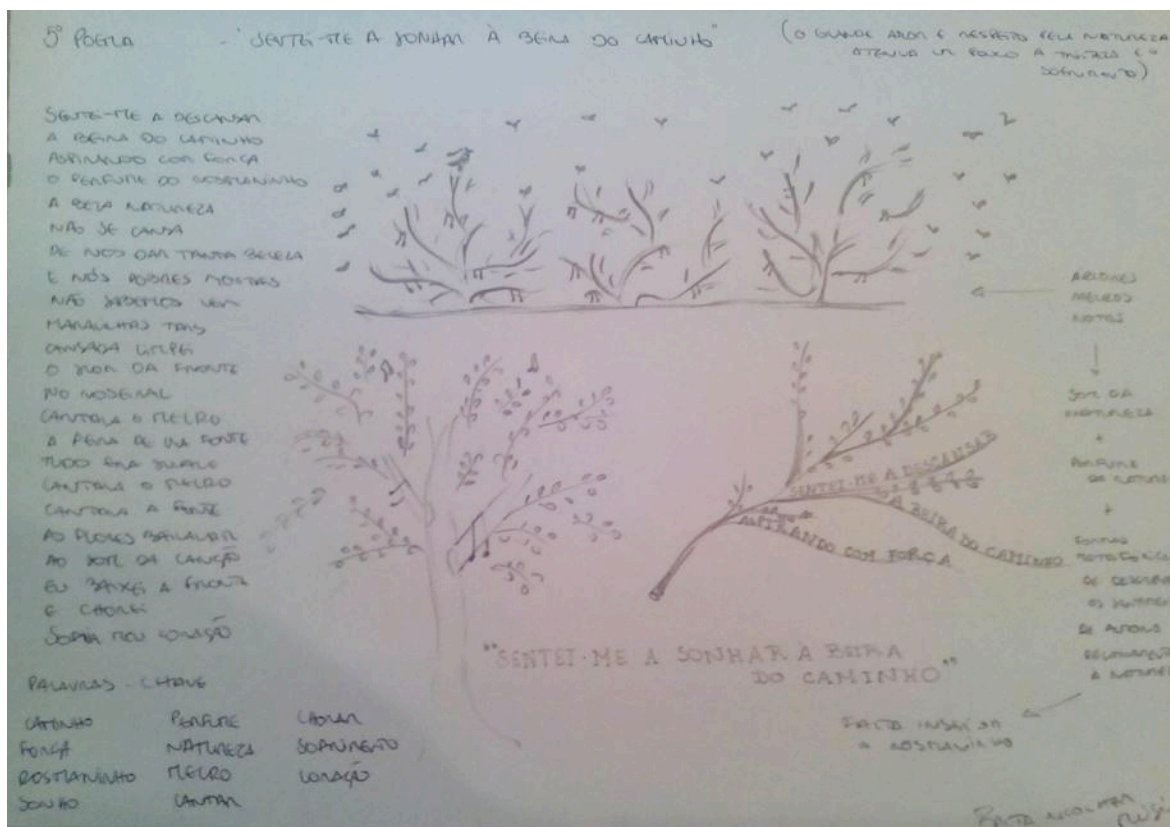 5º POEMA - "SENTEI-ME A SONHAR À BEIRA DO CAMINHO" (O GRANDE AMOR E RESPEITO PELA NATUREZA
ATENUA UM POUCO A TRISTEZA E O
SOFRIMENTO)
SENTEI-ME A DESCANSAR
A BEIRA DO CAMINHO
ASPIRANDO COM FORÇA
O PERFUME DO ROSMANINHO
A BELA NATUREZA
NÃO SE CANSA
DE NOS DAR TANTA BELEZA
E NÓS POBRES MORTAIS
NÃO SABEMOS VER
MARAVILHAS TAIS
CANSADA LIMPEI
O SUOR DA FRONTE
NO ROSEIRAL
CANTAVA O MELRO
A BEIRA DE UMA FONTE
TUDO ERA SUAVE
CANTAVA O MELRO
CANTAVA A FONTE
AS FLORES BAILAVAM
AO SOM DA CANÇÃO
EU BAIXEI A FRONTE
E CHOREI
SOFRIA MEU CORAÇÃO
PALAVRAS - CHAVE
CAMINHO PERFUME CHORAR
FORÇA NATUREZA SOFRIMENTO
ROSMANINHO MELRO CORAÇÃO
SONHO CANTAR
SENTEI-ME A DESCANSAR
A BEIRA DO CAMINHO
ASPIRANDO COM FORÇA
"SENTEI-ME A SONHAR À BEIRA
DO CAMINHO"
ÁRVORES
MELROS
NOTAS
SOM DA
NATUREZA
+
PERFUME
DA
+
FORMAS
DE
OS
DE
A
FALTA INSERIR
O ROSMANINHO